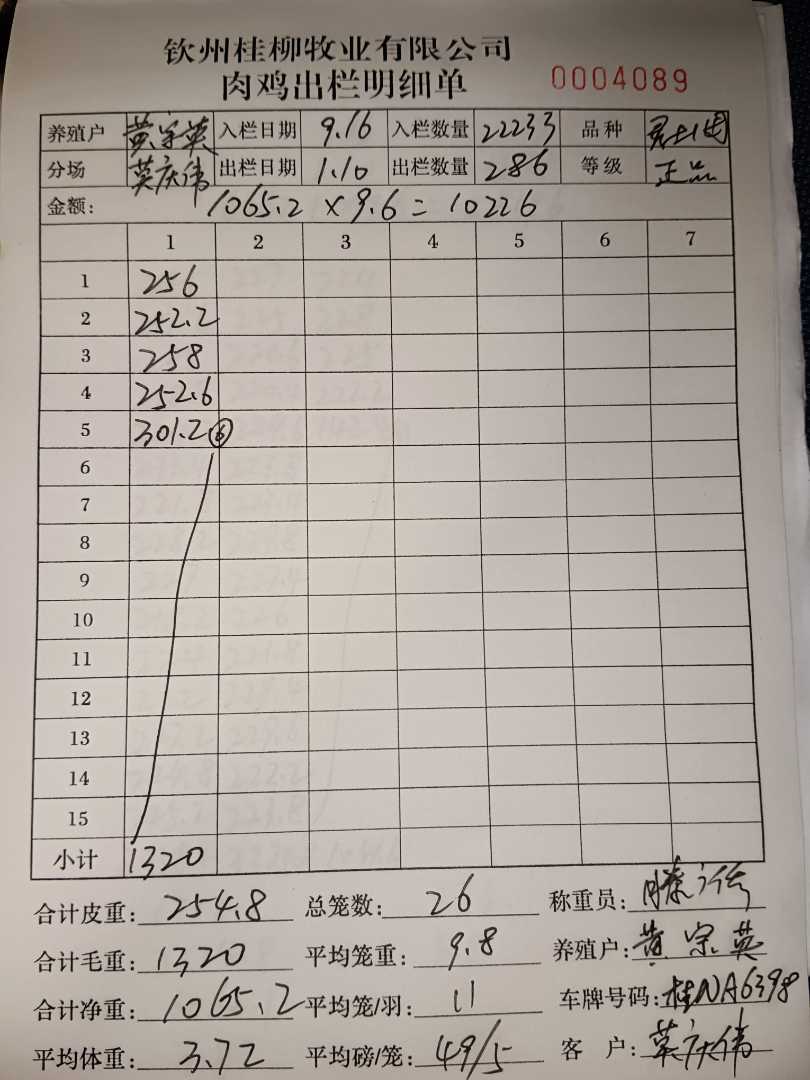 钦州桂柳牧业有限公司
肉鸡出栏明细单 0004089
养殖户 黄宗英 入栏日期 9.16 入栏数量 22233 品种
分场 莫庆伟 出栏日期 1.10 出栏数量 286 等级 正品
金额: 1065.2 × 9.6 = 10226
1 2 3 4 5 6 7
1 256
2 252.2
3 258
4 252.6
5 301.2 ⑥
6
7
8
9
10
11
12
13
14
15
小计 1320
合计皮重: 254.8 总笼数: 26 称重员:
合计毛重: 1320 平均笼重: 9.8 养殖户: 黄宗英
合计净重: 1065.2 平均笼/羽: 11 车牌号码: 桂NA6398
平均体重: 3.72 平均磅/笼: 49/5 客户: 莫庆伟